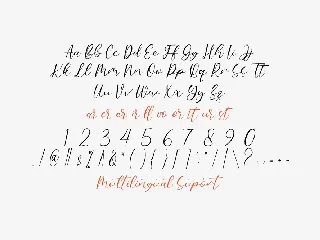 Aa Bb Cc Dd Ee Ff Gg Hh Ii Jj
Kk Ll Mm Nn Oo Pp Qq Rr Ss Tt
Uu Vv Ww Xx Yy Zz
ar er or r ll oo or tt ur st
1 2 3 4 5 6 7 8 9 0
Multilingual Suport